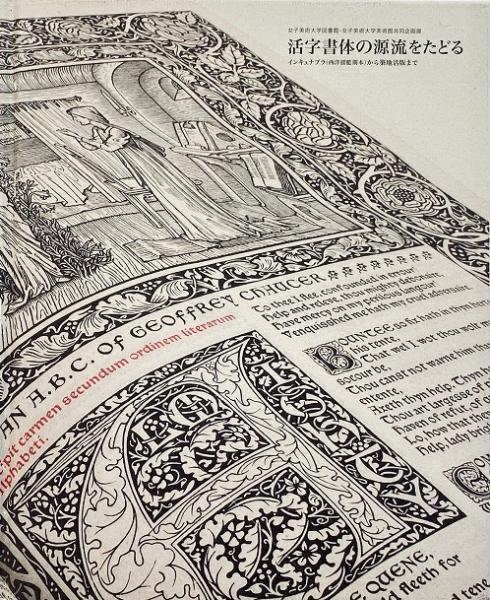 女子美術大学図書館・女子美術大学美術館共同企画展
活字書体の源流をたどる
インキュナブラ(西洋揺籃期本)から築地活版まで
AN A.B.C. OF GEOFFREY CHAUCER
carmen secundum ordinem literarum
alphabeti.
To thee I flee, confounded in errour!
Help and releve, thou mighty debonaire,
Have mercy on my perilous langour!
Venquisshed me hath my cruel adversaire.
BOUNTEE so fix hath in thyn herte
his tente,
That wel I wot thou wolt
socour be,
Thou canst not warne him
entente
Axeth thyn help. Thyn
Thou art largesse of
Haven of refut, of
Lo, how that
Help, lady bright
QUENE,
fleeth for
tene